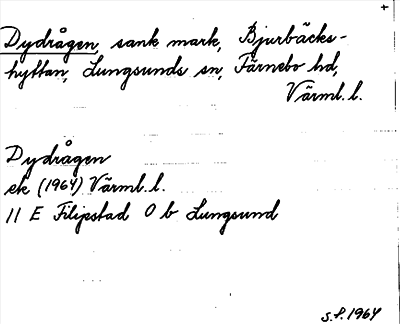 +
Dydrågen, sank mark, Bjurbäcks-
hyttan, Lungsunds sn, Färnebo hd,
Värml. l.
Dydrågen
ek (1964) Värml. l.
11 E Filipstad 0 b Lungsund
S.P. 1964